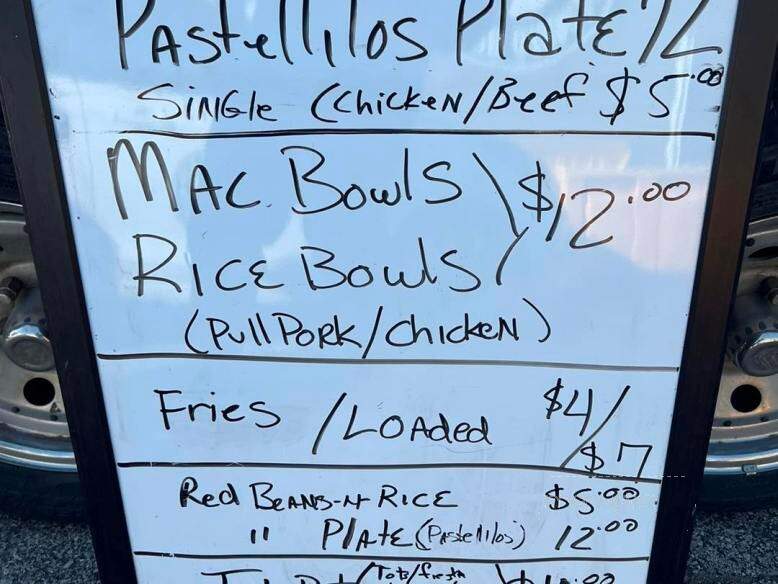 Pastellilos Plate 12
Single (Chicken/Beef $5.00
Mac. Bowls \ $12.00
Rice Bowls /
(Pull Pork/Chicken)
Fries /Loaded $4/
$7
Red Beans-N-Rice $5.00
" Plate (Pastelilos) 12.00